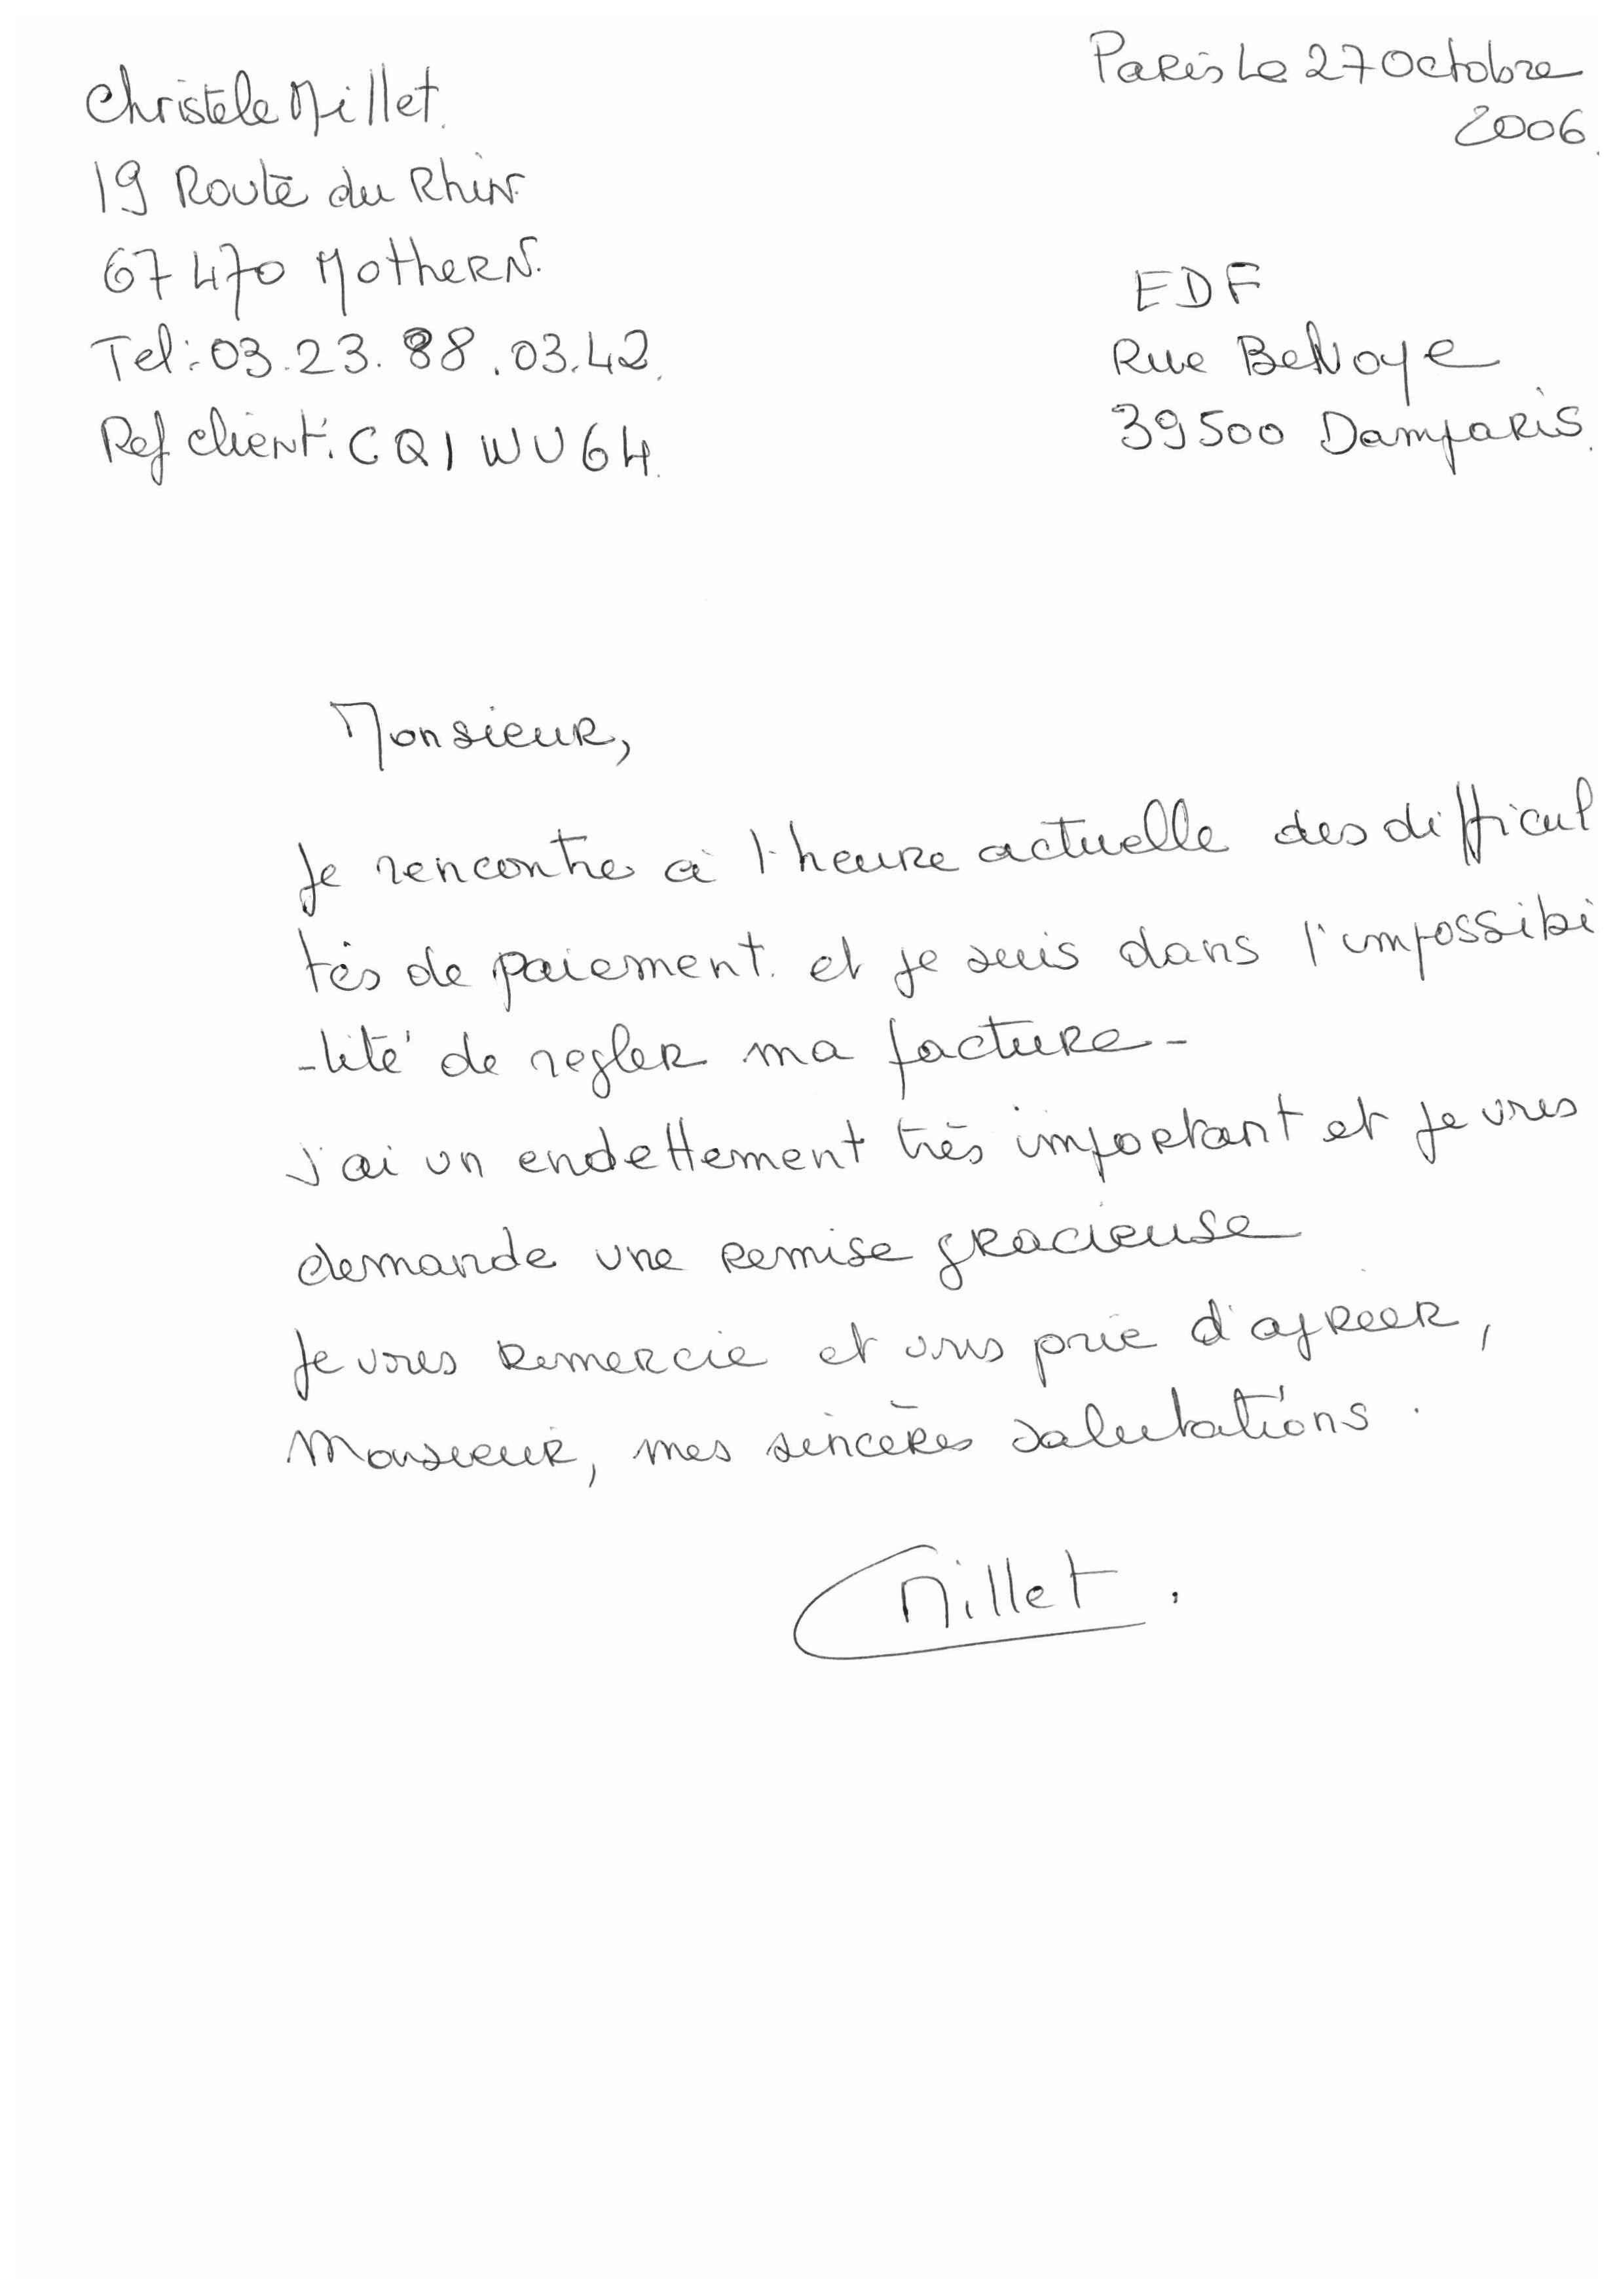 Christele Millet.
19 Route du Rhin
67470 Mothern.
Tel: 03.23.88.03.42.
Ref client: CQ1WU64.
Paris Le 27 Octobre
2006.
EDF
Rue Belvoye
39500 Damparis.
Monsieur,
Je rencontre à l'heure actuelle des difficul
tés de paiement. et je suis dans l'impossibi
-lité de regler ma facture-
J'ai un endettement très important et je vous
demande une remise gracieuse
Je vous remercie et vous prie d'agréer,
Monsieur, mes sincères salutations.
Millet.